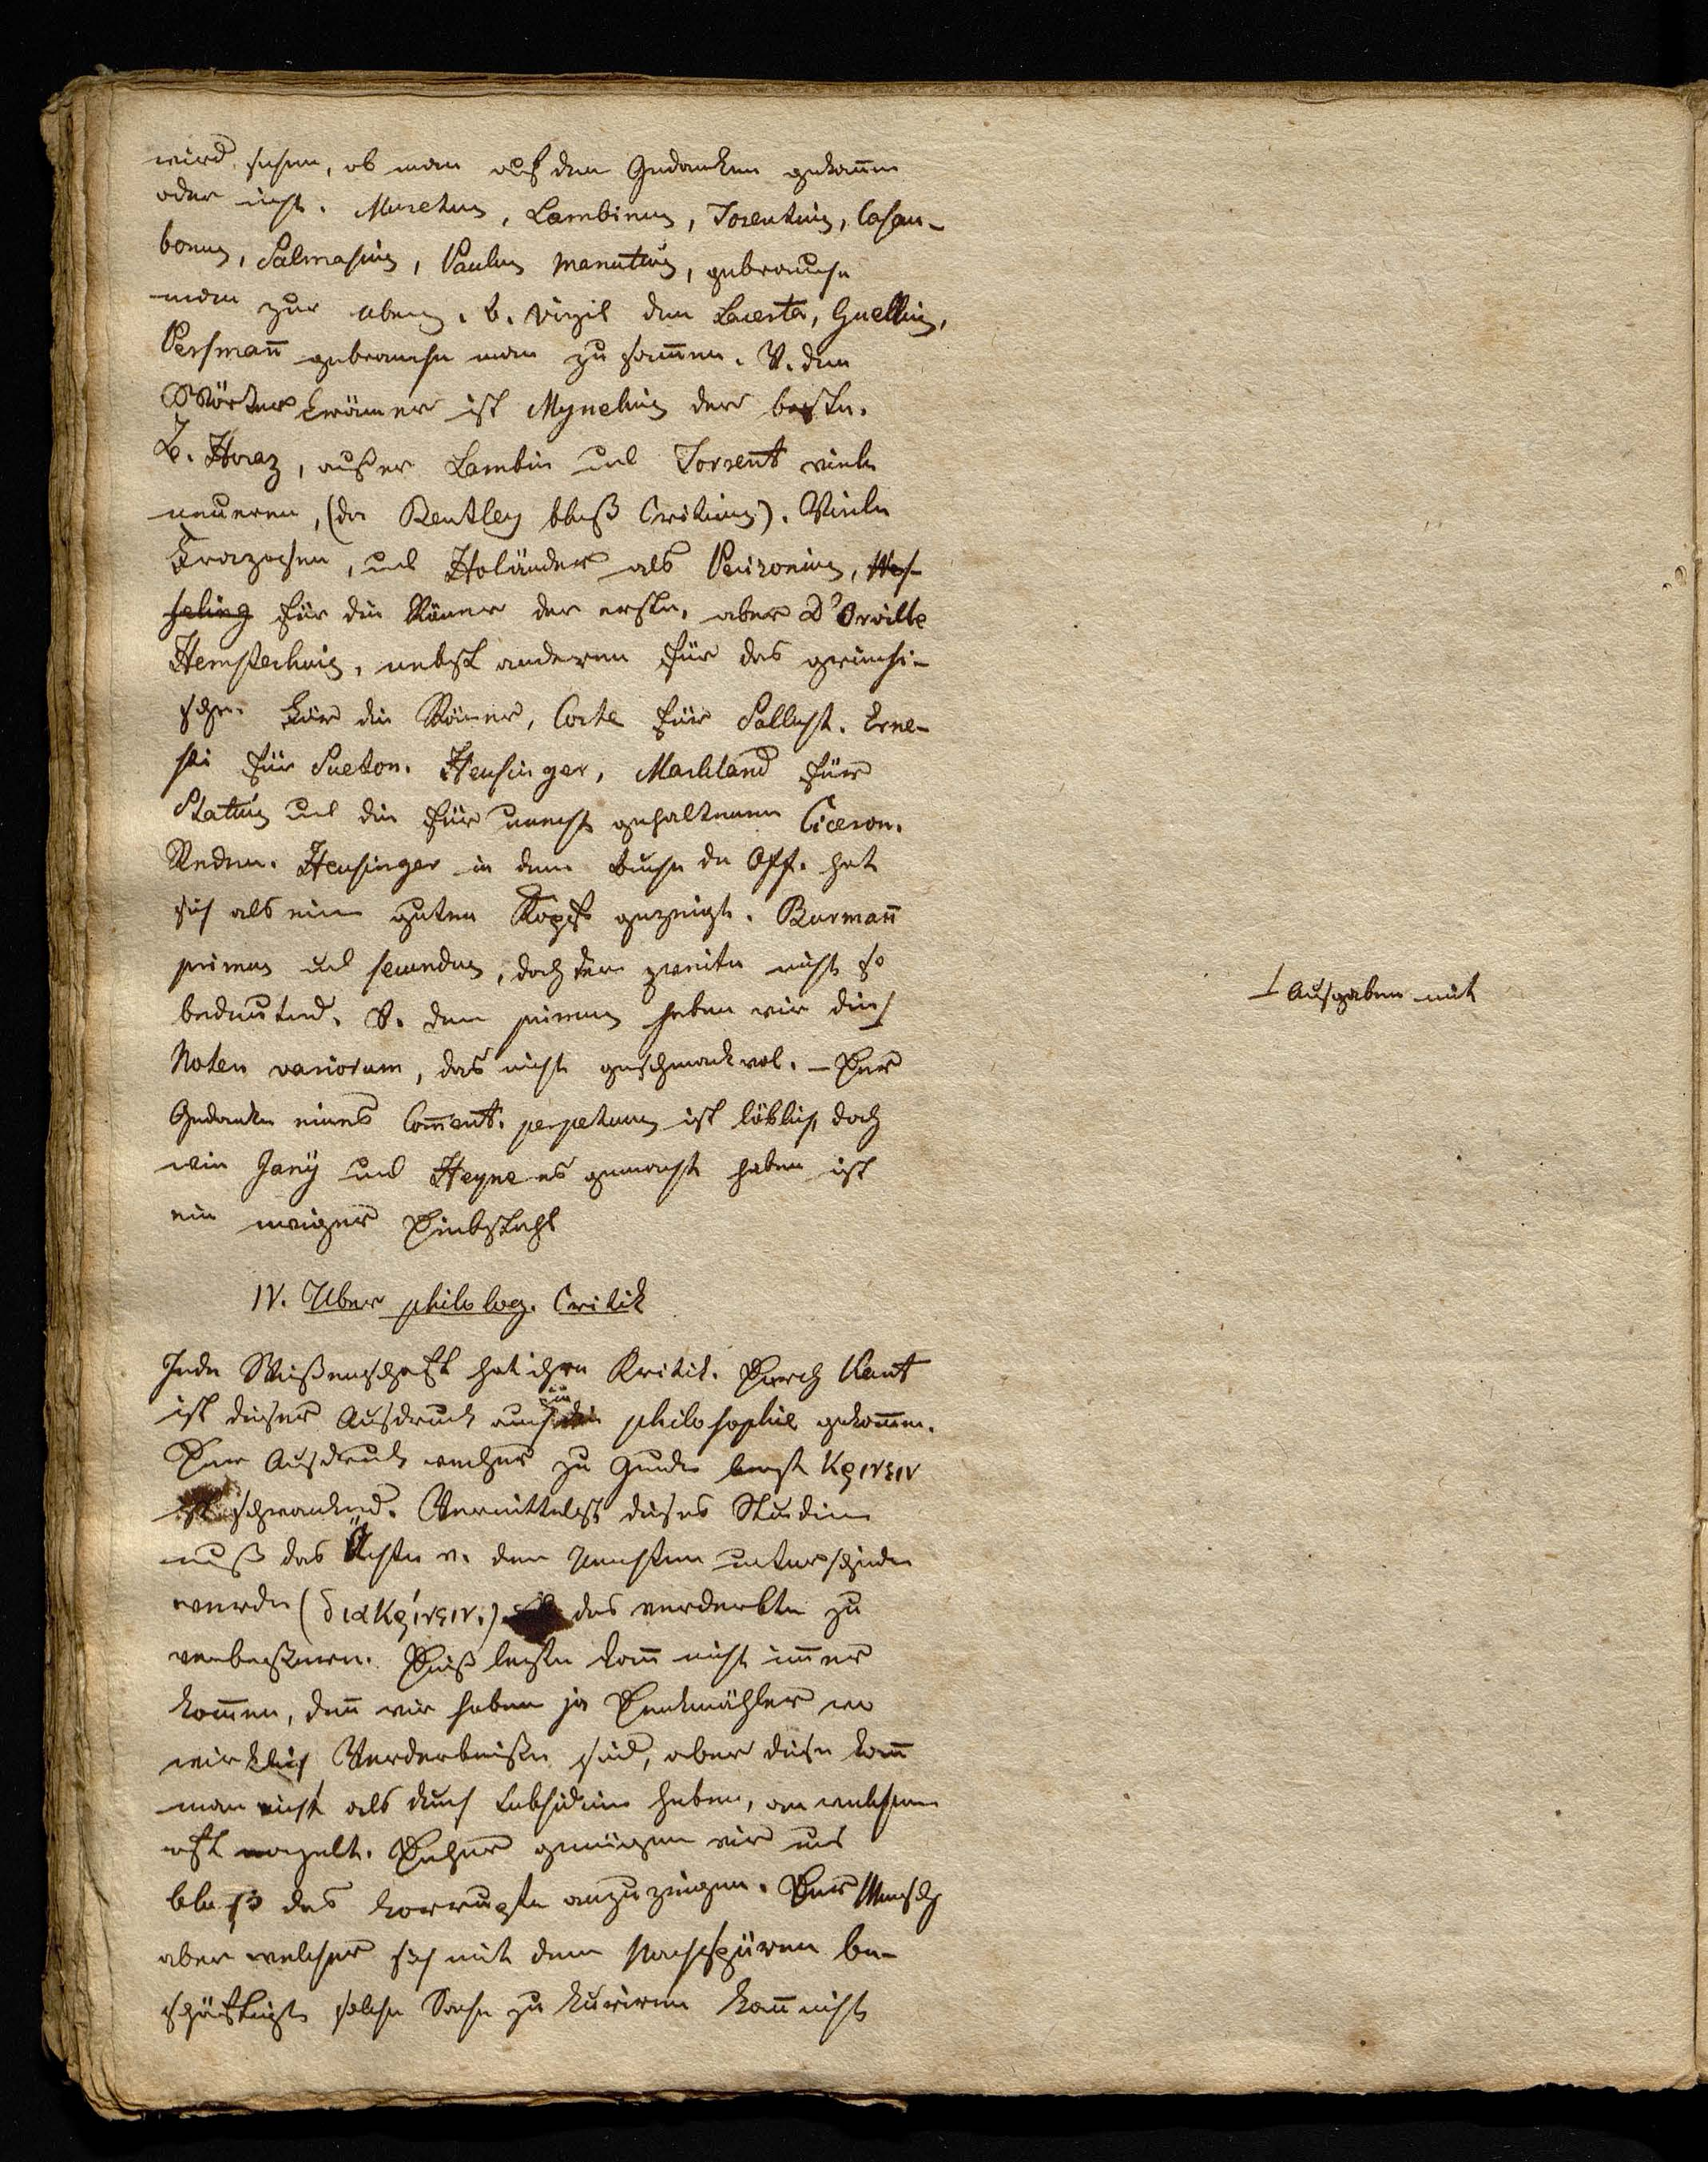 wird sehen, ob man auf den Gedanken gekom̄en
oder nicht. Muretus, Lambinus, Torentius, Casau-
bonus, Salmasius, Paulus Manutius, gebrauche
man zur
b. Virgil den Lacerta, Guellius,
Persman̄ gebrauche man zusam̄en. V. den
Wörterkrämer ist Mynelius der beste.
B. Horaz, außer Lambin und Torrent viele
neueren, (da Bentley bloß Criticus). Viele
Franzosen, und Holänder als Perizonius, Wes-
seling für die Römer der erste, aber D'Orville
Hemsterhuis, nebst anderen für das griechi-
sche. Für die Römer, Corte für Sallust. Erne-
sti für Sueton. Heusinger, Markland für
Statius und die für unächt gehaltenen Ciceron.
Reden. Heusinger in dem Buche de Off. hat
sich als einen guten Kopf gezeigt. Burman̄
primus und secundus, doch der zweite nicht so
bedeutend. V. dem primus haben wir die
Noten variorum, das nicht geschmackvol. – Der
Gedanke eines Com̄ent. perpetuus ist löblich, doch
wie Jani und Heyne es gemacht haben ist
ein ewiger Diebstahl
IV. Uber philolog. Critik
Jede Wißenschaft hat ihre Kritik. Durch Kant
ist dieser Ausdruck auch in die philosophie gekom̄en.
Der Ausdruck welcher zu Grunde liegt κρινειν
ist schwankend. Vermittelst dieses Studiums
muß das Ächte v. dem Unächten unterschieden
werden (διακρίνειν.) das verderbte zu
verbeßern. Dieß letzte kan̄ nicht im̄er
kom̄en, den̄ wir haben ja Denkmähler wo
wirklich Verderbniße sind, aber diese kan̄
man nicht als durch Subsidien heben, an welchen
oft mangelt. Daher genügen wir uns
bloß das korrupte anzuzeigen. Der Mensch
aber welcher sich mit dem Nachspüren be-
schäftigt solche Sache zu kuriren kan̄ nicht
⊥ Ausgaben mit